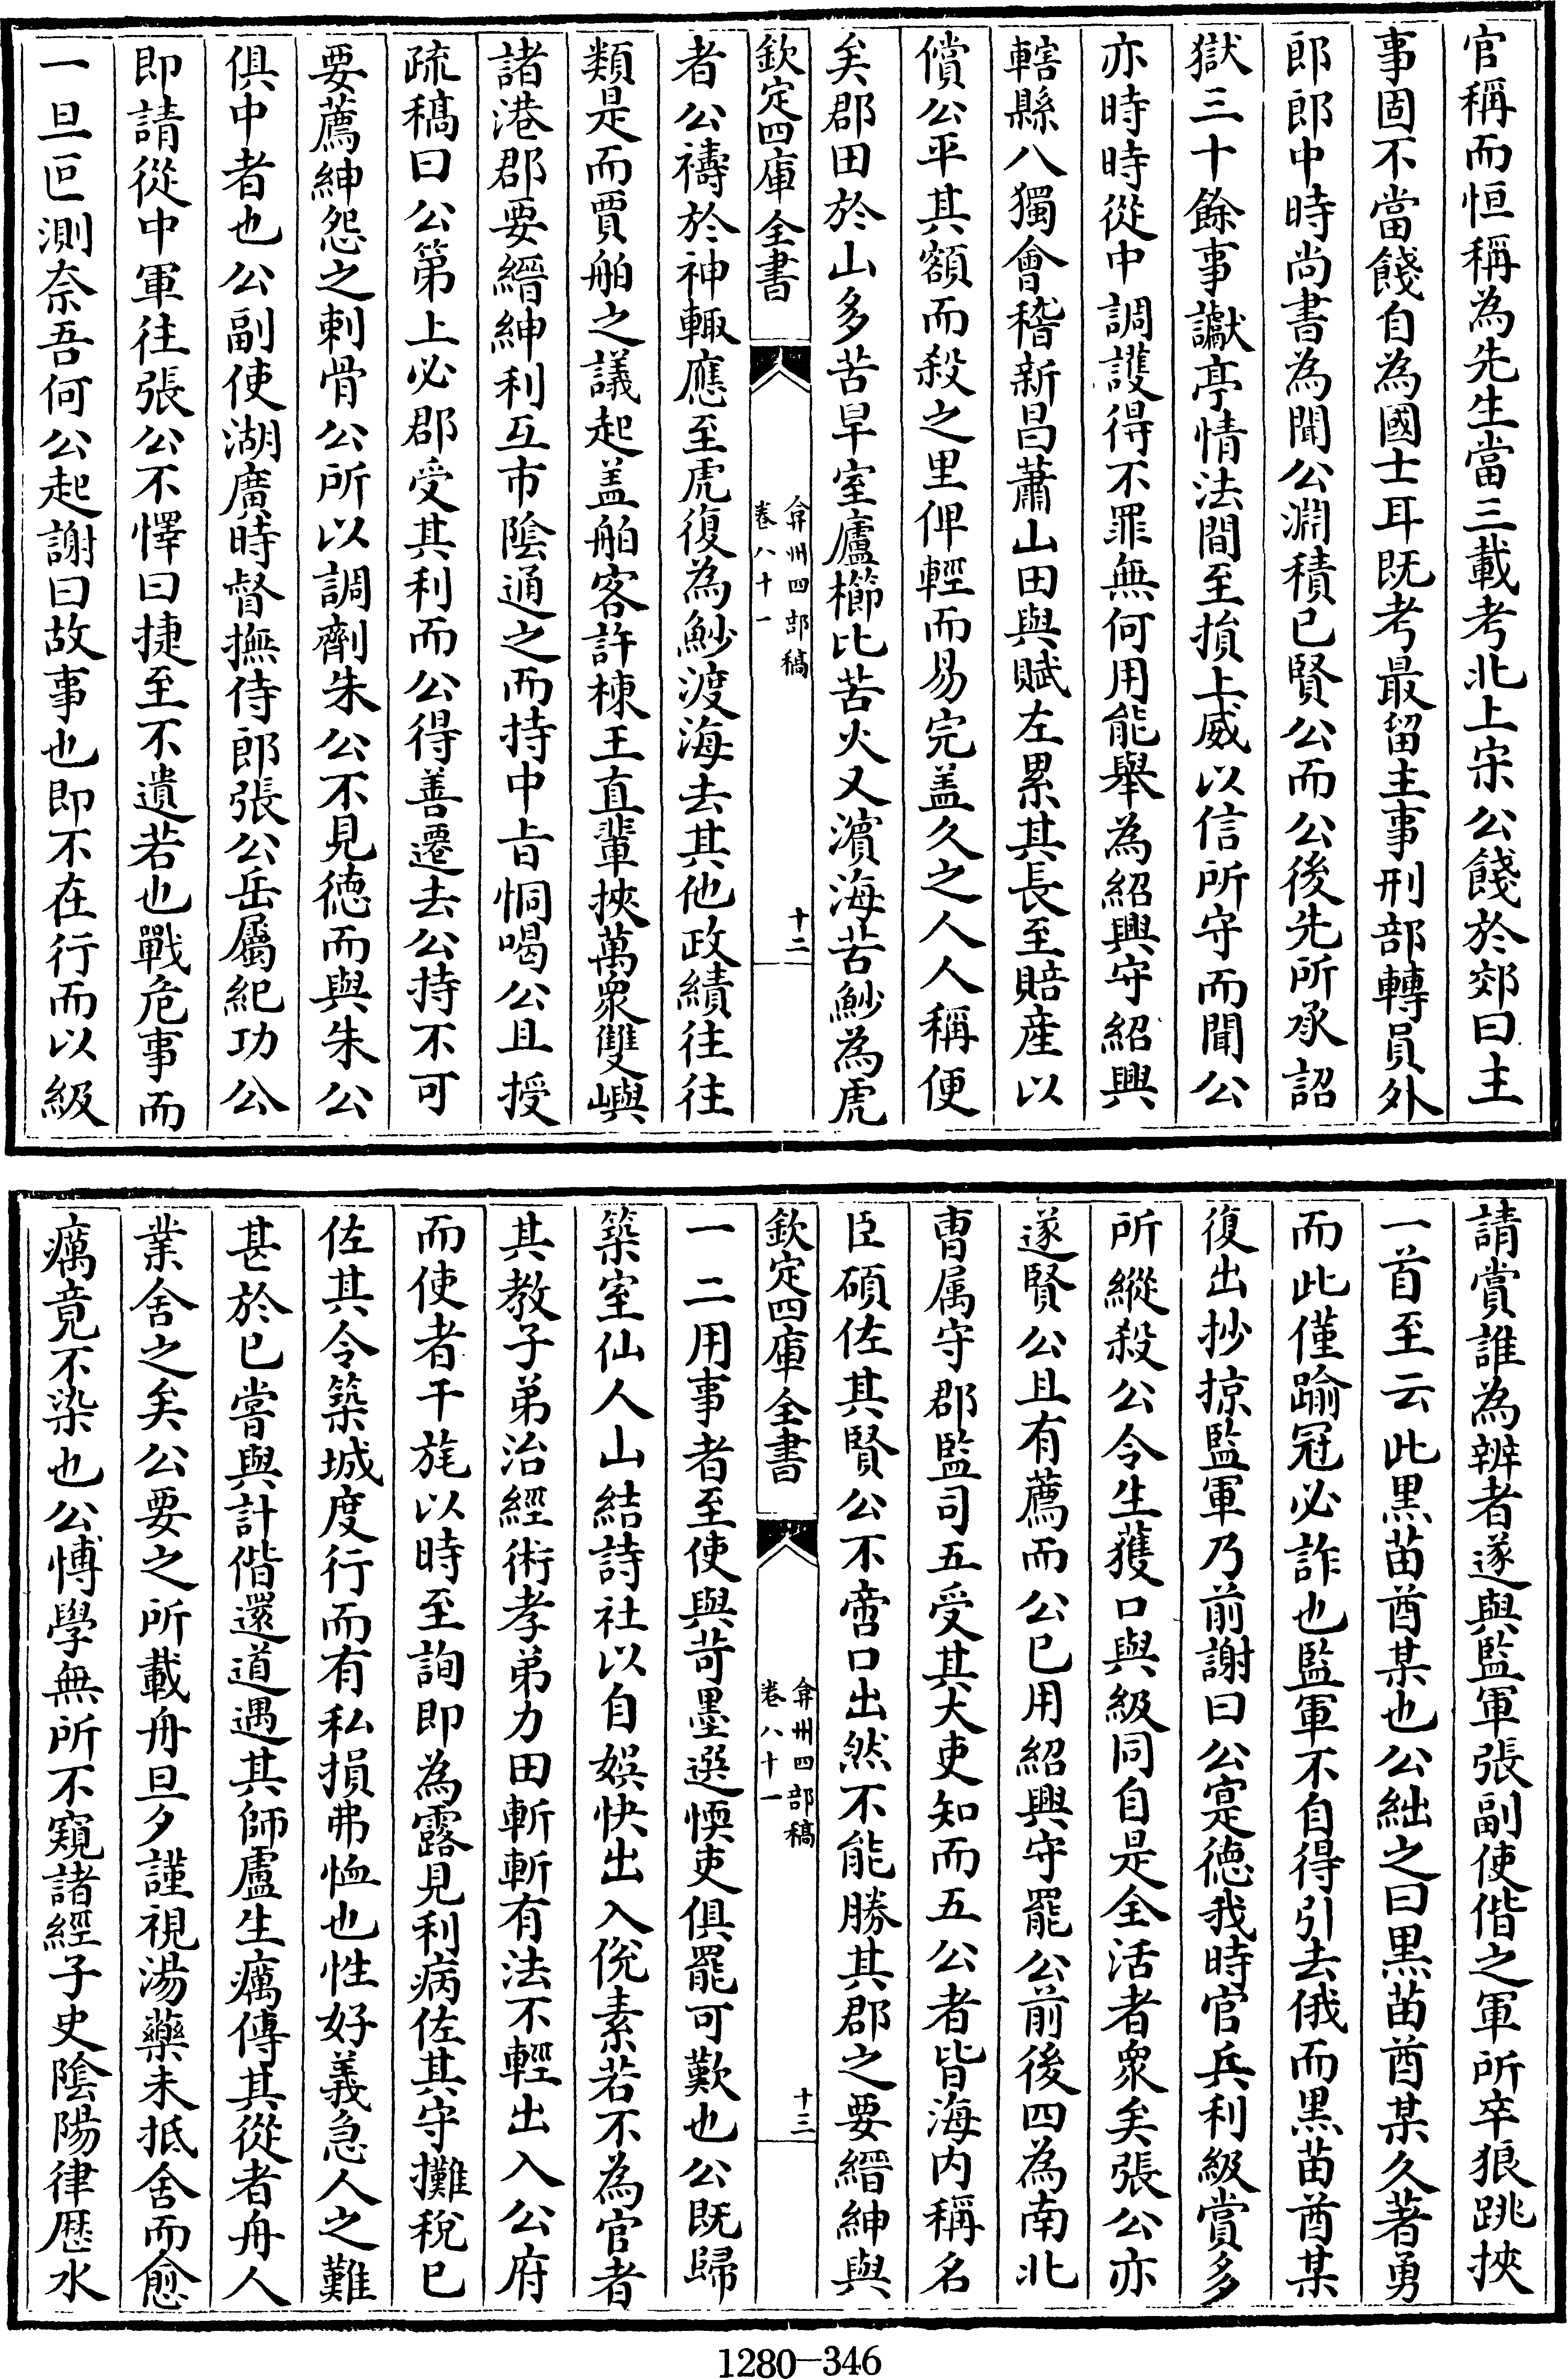 官稱而恒稱為先生當三載考北上宋公餞於郊曰主
事固不當餞自為國士耳既考最留主事刑部轉員外
郎郎中時尚書為聞公淵積已賢公而公後先所承詔
獄三十餘事讞亭情法間至損上威以信所守而聞公
亦時時從中調護得不罪無何用能舉為紹興守紹興
轄縣八獨會稽新昌蕭山田與賦左累其長至賠産以
償公平其額而殺之里俾輕而易完盖久之人人稱便
矣郡田於山多苦旱室廬櫛比苦火又濵海苦魦為虎
欽定四庫全書
弇州四部稿
卷八十一
十二
者公禱於神輙應至虎復為魦渡海去其他政績往往
類是而賈舶之議起盖舶客許棟王直輩挾萬衆雙嶼
諸港郡要縉紳利互市陰通之而持中㫖恫喝公且授
疏稿曰公第上必郡受其利而公得善遷去公持不可
要薦紳怨之刺骨公所以調劑朱公不見徳而與朱公
俱中者也公副使湖廣時督撫侍郎張公岳屬紀功公
即請從中軍往張公不懌曰捷至不遺若也戰危事而
一旦叵測奈吾何公起謝曰故事也即不在行而以級
請賞誰為辨者遂與監軍張副使偕之軍所卒狼跳挾
一首至云此黑苗酋某也公絀之曰黑苗酋某久著勇
而此僅踰冠必詐也監軍不自得引去俄而黑苗酋某
復出抄掠監軍乃前謝曰公寔徳我時官兵利級賞多
所縱殺公令生獲口與級同自是全活者衆矣張公亦
遂賢公且有薦而公已用紹興守罷公前後四為南北
曹属守郡監司五受其大吏知而五公者皆海内稱名
臣碩佐其賢公不啻口出然不能勝其郡之要縉紳與
欽定四庫全書
弇州四部稿
卷八十一
十三
一二用事者至使與苛墨選愞吏俱罷可歎也公既歸
築室仙人山結詩社以自娯快出入侻素若不為官者
其教子弟治經術孝弟力田斬斬有法不輕出入公府
而使者干旄以時至詢即為露見利病佐其守攤稅已
佐其令築城度行而有私損弗恤也性好義急人之難
甚於已嘗與計偕還道遇其師盧生癘傳其從者舟人
業舍之矣公要之所載舟旦夕謹視湯藥未抵舍而愈
癘竟不染也公愽學無所不窺諸經子史陰陽律厯水
1280—346